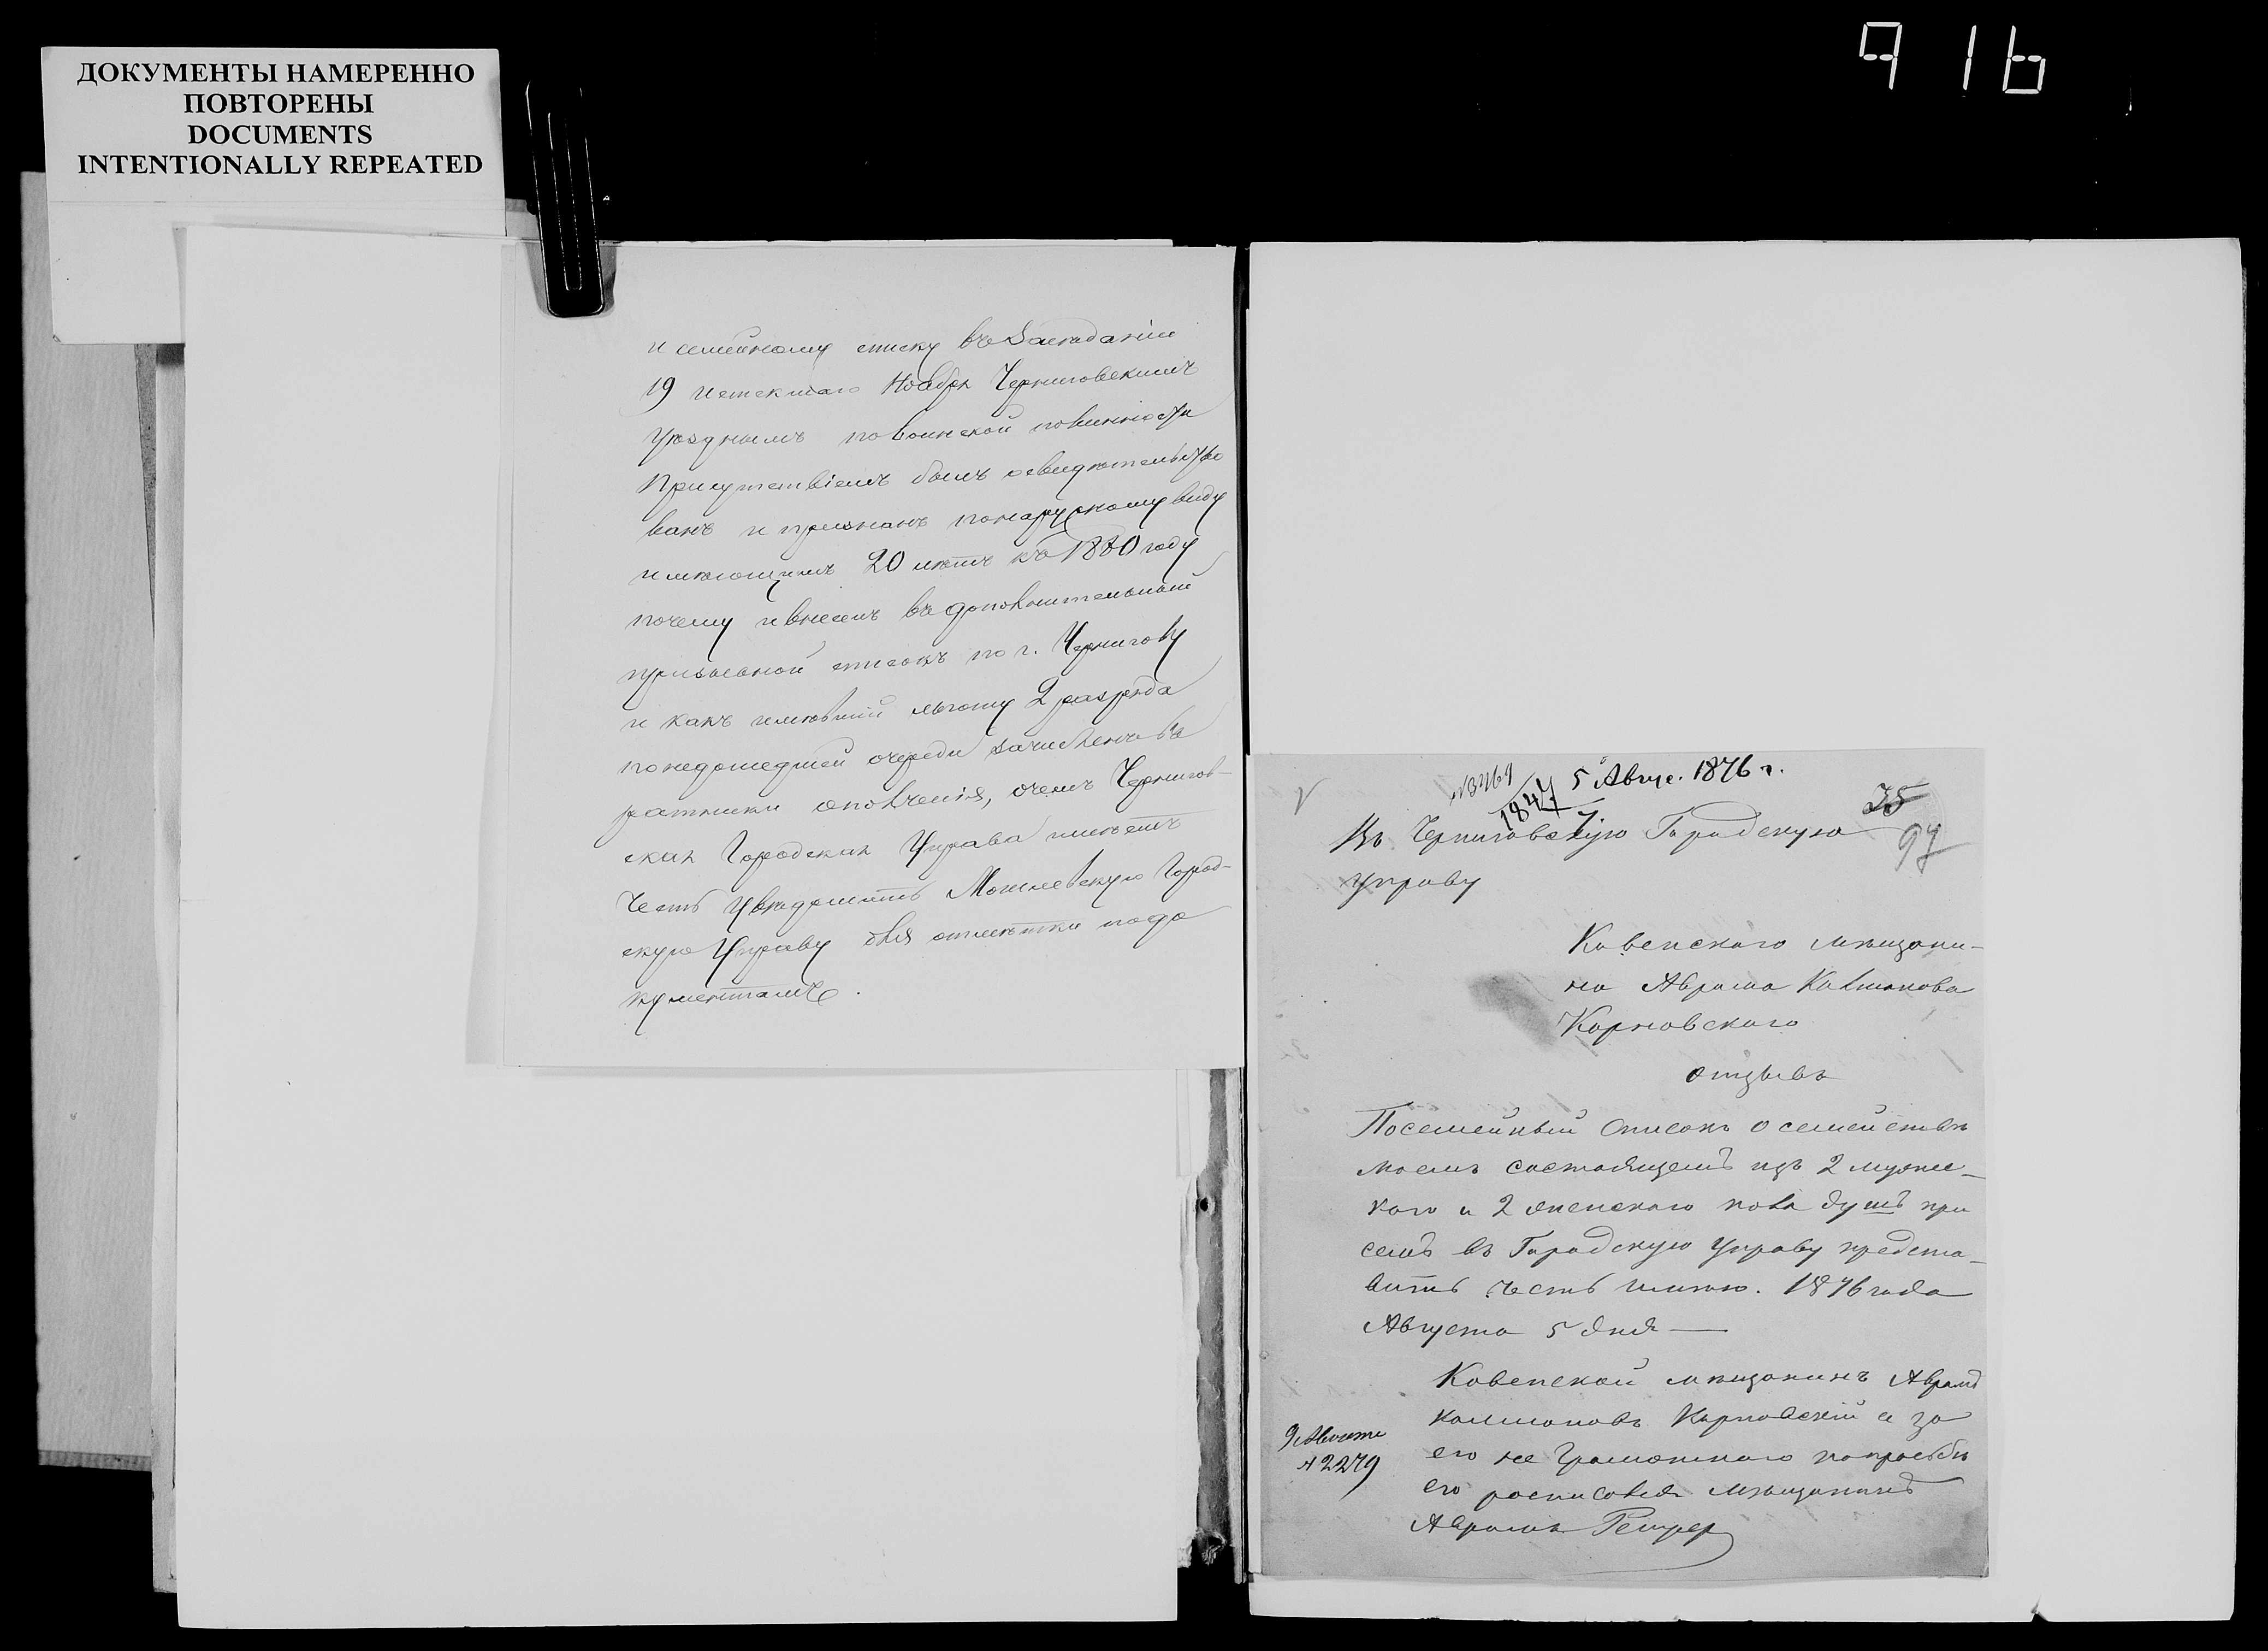 916
ДОКУМЕНТЫ НАМЕРЕННО
ПОВТОРЕНЫ
DOCUMENTS
INTENTIONALLY REPEATED
и семейному списку въ Заседаніи
19 истекшаго Ноября Черниговскимъ
уѣзднымъ по воинской повинности
Присутствіемъ былъ освидѣтельство
ванъ и признанъ по наружному виду
имѣющимъ 20 лѣтъ къ 1880 году
почему и внесенъ въ дополнительный
призывной списокъ по г. Чернигову
и какъ имѣвшій льготу 2 разряда
по недошедшей очереди зачисленъ въ
ратники ополченія, о чемъ Чернигов-
ская Городская Управа имѣетъ
честь увѣдомить Городскую
скую Управу для отмѣтки по до
кументамъ.
5 Авгус. 1876 г.
1847
35
97
Въ Черниговскую Городскую
Управу
Ковенскаго мѣщани-
на Абрама Калманова
Карновскаго
отзывъ
Посемейный списокъ о семействѣ
моемъ состоящемъ изъ 2 мужес-
каго и 2 женскаго пола душъ при
семъ въ Городскую Управу предста-
вить честь имѣю. 1876 года
Августа 5 дня —
Ковенской мѣщанинъ Абрамъ
Калмановъ Карновскій а за
его не грамотнаго по просьбѣ
его росписовся мѣщанинъ
Абрамъ
9 Августа
№ 2279